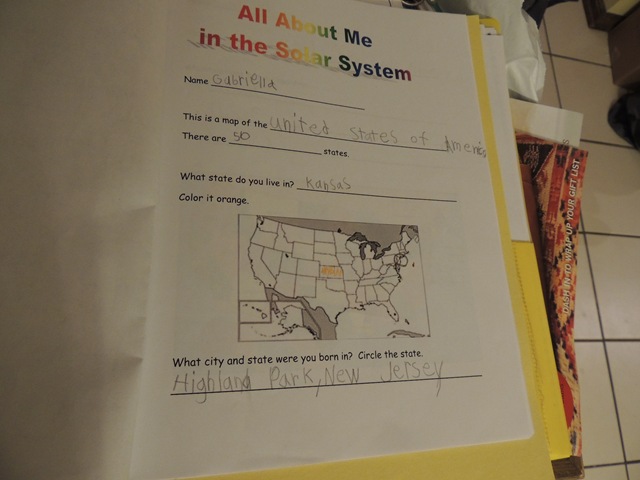 All About Me
in the Solar System
Name Gabriella
This is a map of the united states of America
There are 50 states.
What state do you live in? Kansas
Color it orange.
What city and state were you born in? Circle the state.
Highland Park, New Jersey
DASH IN TO WRAP UP YOUR GIFT LIST